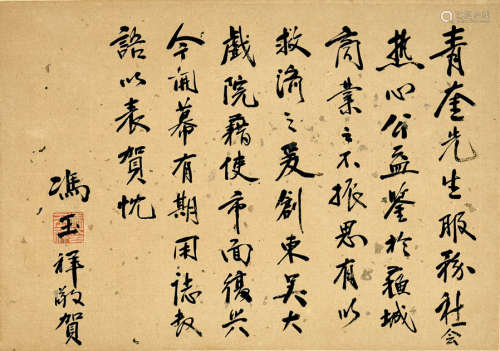 青奎先生服務社会
热心公益鉴於蘇城
商業之不振思有以
救济之爰創東吴大
戲院藉使市面復兴
今開幕有期用誌数
語以表賀忱
馮玉祥敬賀